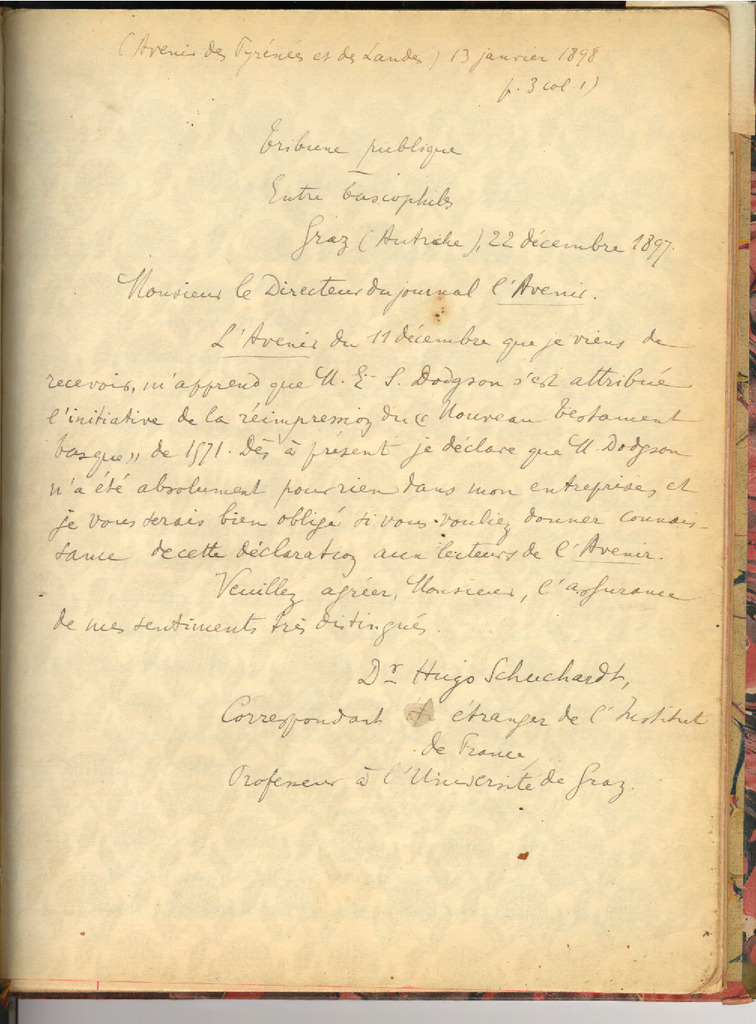 (Avenir des Pyrénées et des Landes) 13 janvier 1898
p. 3 col. 1)
Tribune publique
Entre bascophiles
Graz (Autriche), 22 décembre 1897.
Monsieur le Directeur du journal l'Avenir.
L'Avenir du 11 décembre que je viens de
recevoir, m'apprend que M. E. S. Dodgson s'est attribué
l'initiative de la réimpression du « Nouveau Testament
basque » de 1571. Dès à présent je déclare que M. Dodgson
n'a été absolument pour rien dans mon entreprise, et
je vous serais bien obligé si vous vouliez donner connais-
sance de cette déclaration aux lecteurs de l'Avenir.
Veuillez agréer, Monsieur, l'assurance
de mes sentiments très distingués.
Dr Hugo Schuchardt,
Correspondant étranger de l'Institut
de France,
Professeur à l'Université de Graz.